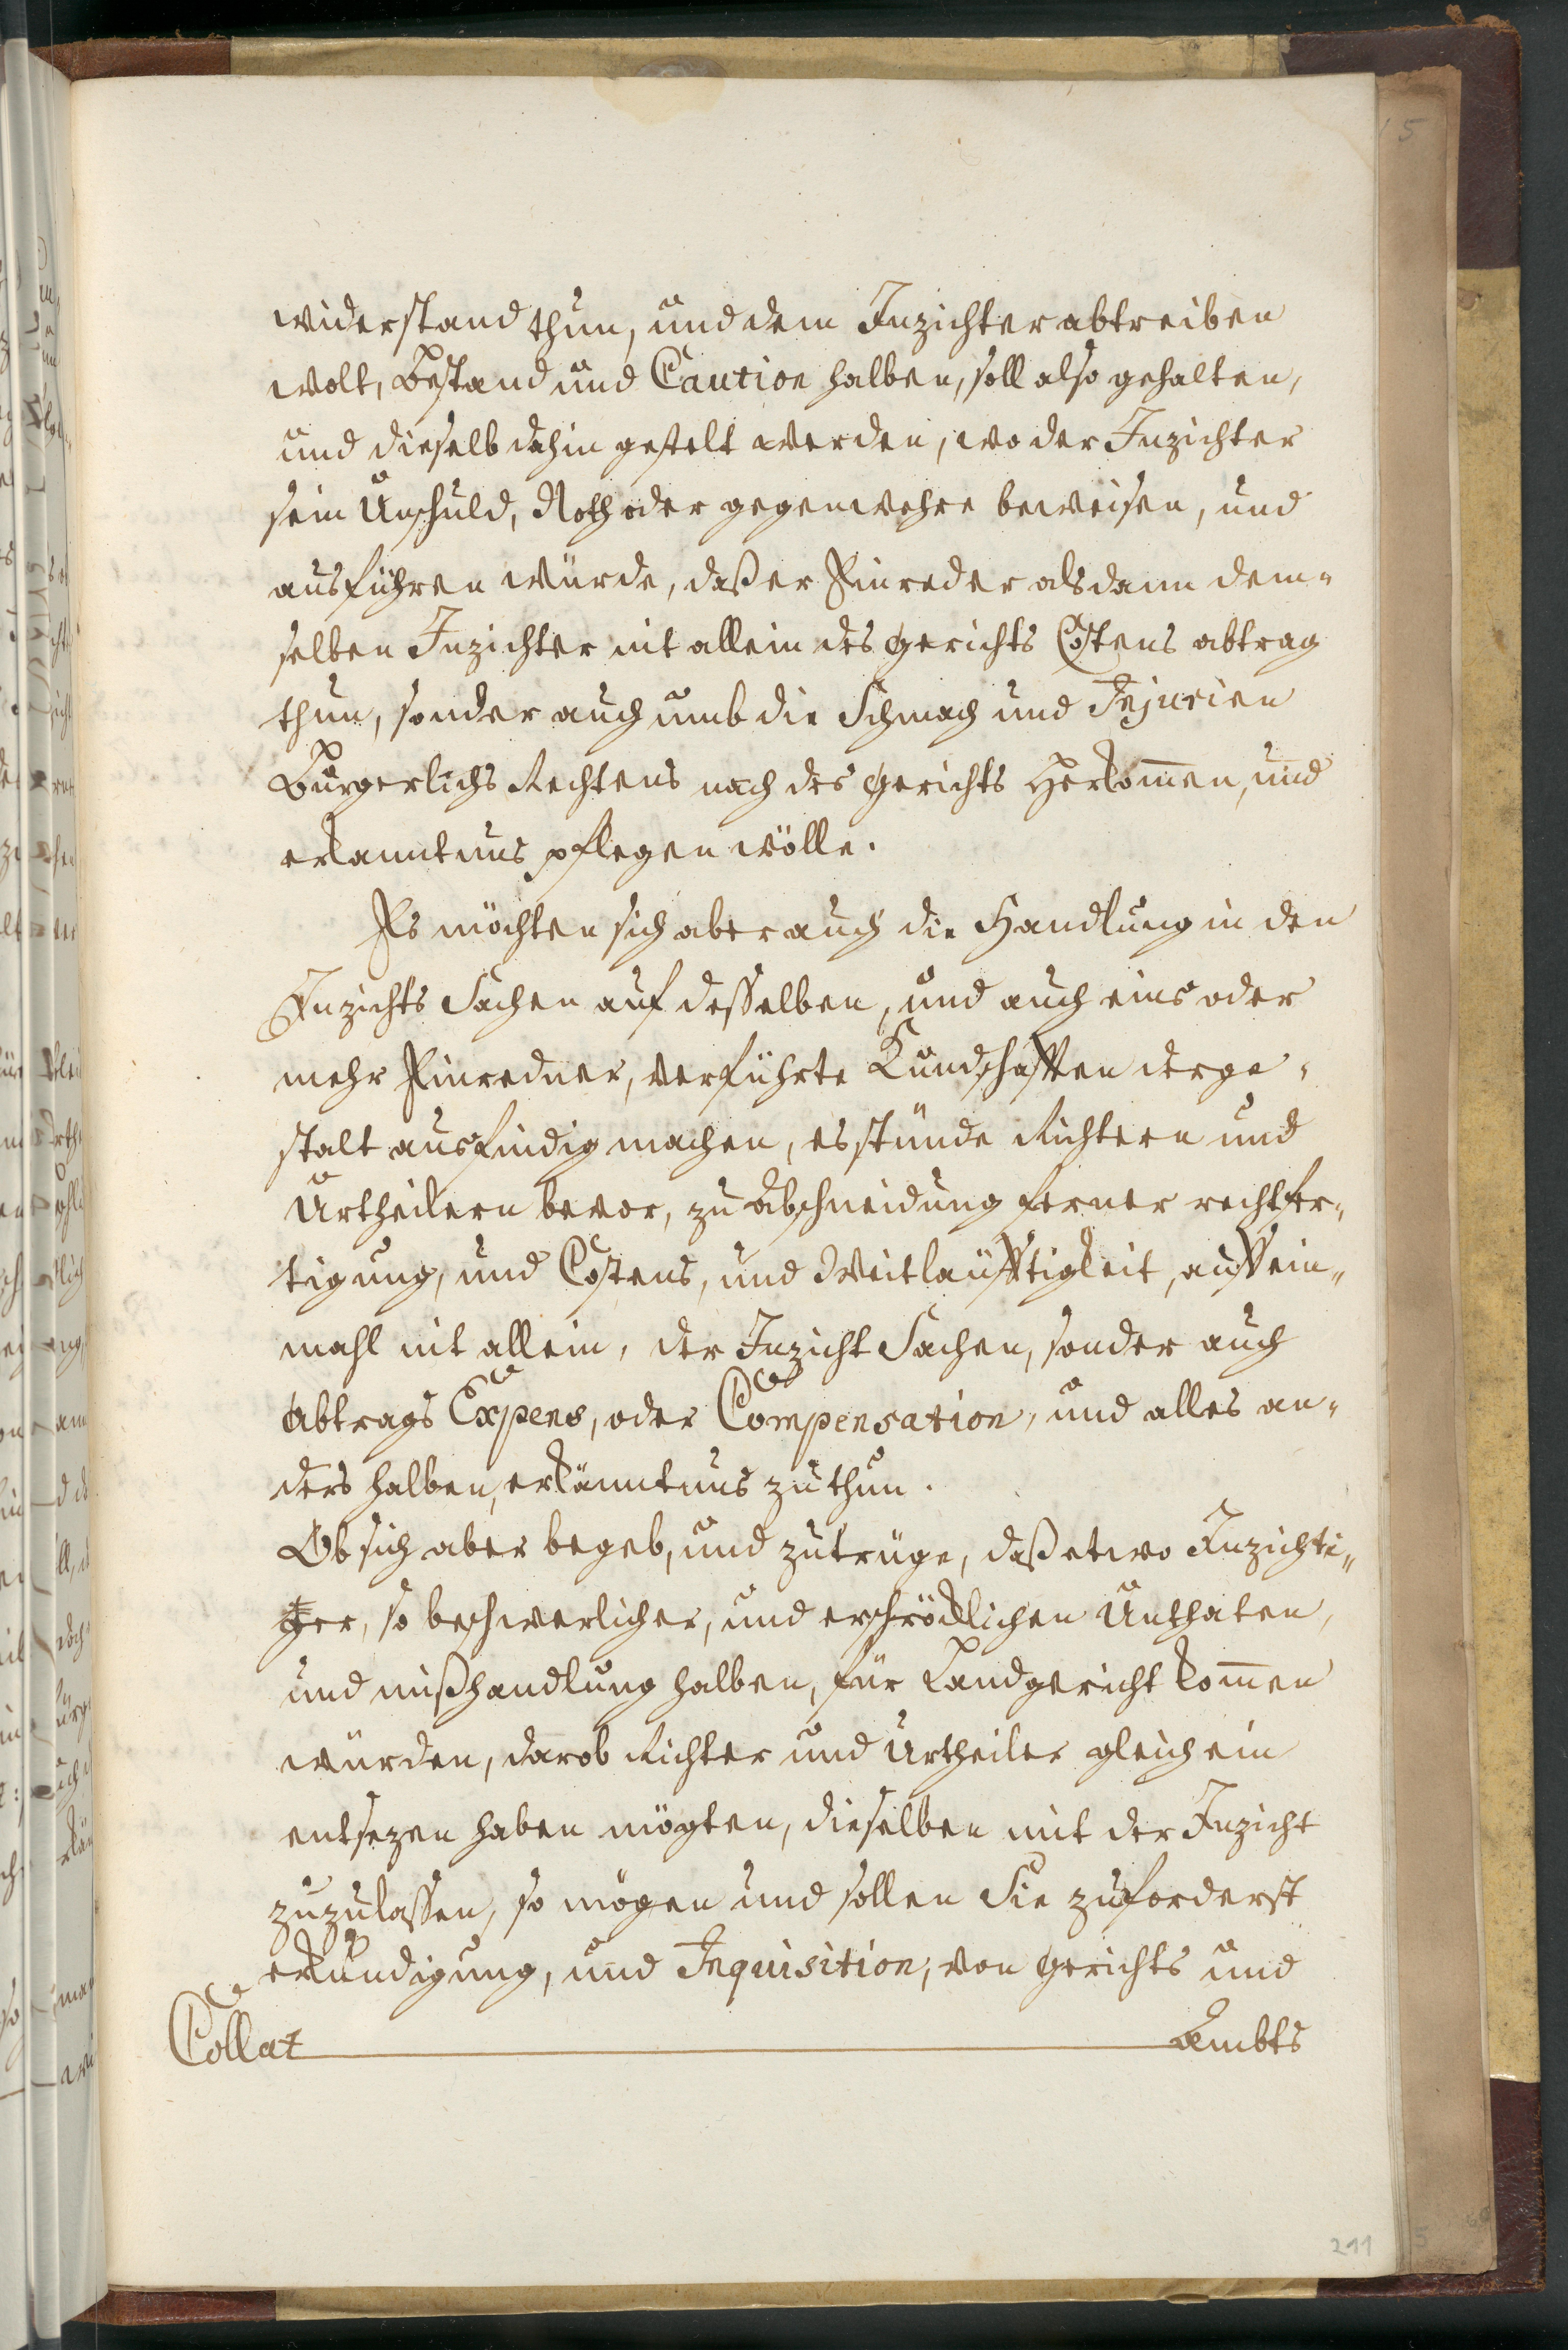 widerstand thun, und dem Inzichter abtreiben
wolt, Bestand und Caution halben, soll also gehalten,
und dieselb dahin gestelt werden, wo der Inzichter
sein Unschuld, Noth oder gegenwehre beweisen, und
ausführen würde, daß er Einreder alsdann dem=
selben Inzichter nit allein des gerichts Costens abtrag
thun, sonder auch umb die Schmach und Injurien
Burgerlichs Rechtens nach des gerichts Herkom̅en, und
erkanntnus pflegen wölle.
Es möchten sich aber auch die Handlung in den
Inzichts Sachen auf desselben, und auch eins oder
mehr Einredner, verführte Kundschafften derge=
stalt ausfindig machen, es stünde Richtern und
Urtheilern bevor, zu Abschneidung ferner rechtfer=
tigung, und Costens, und Weitläufftigkeit, auff ein=
mahl nit allein, der Inzicht Sachen, sonder auch
Abtrags Expens, oder Compensation, und alles an=
ders halben, erkänntnus zu thun.
Ob sich aber begeb, und zutrüge, daß etwo Inzichti=
ger, so beschwerlicher, und erschröcklichen Unthaten,
und mißhandlung halben, für Landgericht kom̅en
würden, darob Richter und Urtheiler gleich ein
entsezen haben mögten, dieselben mit der Inzicht
zuzulassen, so mögen und sollen Sie zuforderst
erkundigung, und Inquisition, von gerichts und
Collat Ambts
211